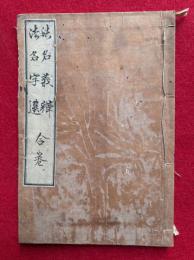 法名義辨
法名字選
合巻